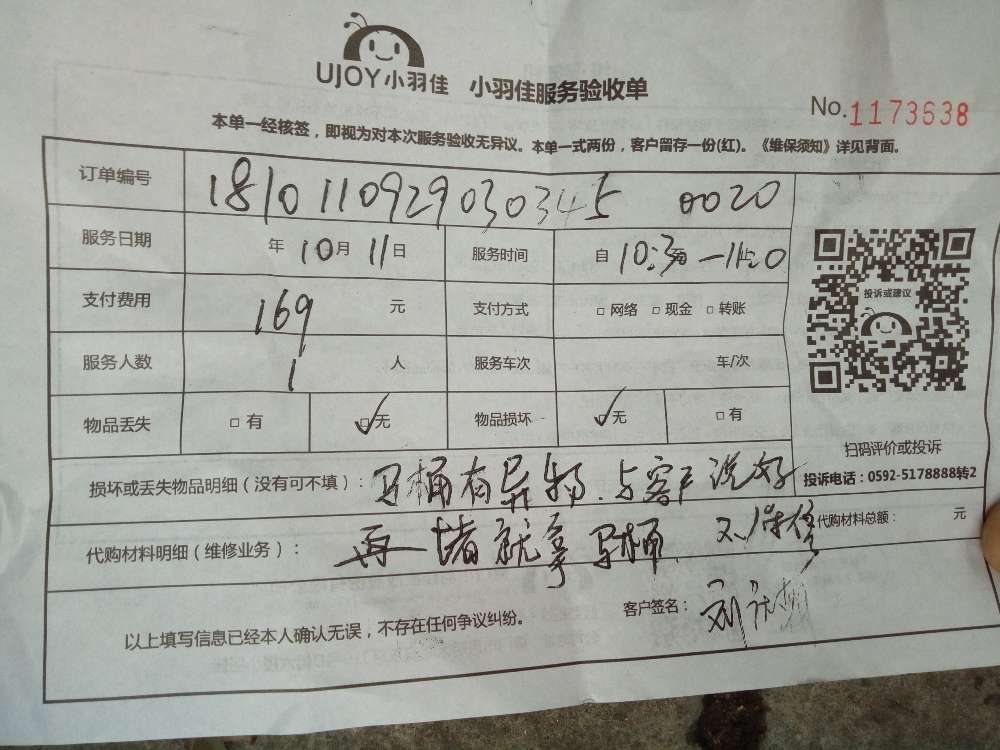 UJOY小羽佳 小羽佳服务验收单
No.1173638
本单一经核签，即视为对本次服务验收无异议。本单一式两份，客户留存一份(红)。《维保须知》详见背面。
订单编号 18101109290303455 0020
服务日期 年 10月 11日 服务时间 自 10:3
支付费用 169 元 支付方式 □ 网络 □ 现金 □ 转账
投诉或建议
服务人数 1 人 服务车次 车/次
物品丢失 □ 有 □ 无 物品损坏 □ 无 □ 有
扫码评价或投诉
投诉电话：0592-5178888转2
损坏或丢失物品明细（没有可不填）： 马桶有异物、与客户说好
代购材料明细（维修业务）： 再堵就拿马桶. 不保修 代购材料总额： 元
以上填写信息已经本人确认无误，不存在任何争议纠纷。 客户签名： 刘